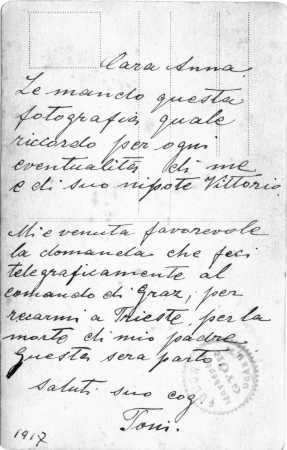 Cara Anna.
Le mando questa
fotografia, quale
ricordo per ogni
eventualità di me
e di suo nipote Vittorio.
Mi è venuta favorevole
la domanda che feci
telegraficamente al
comando di Graz, per
recarmi a Trieste, per la
morte di mio padre.
Questa sera parto
saluti suo cog.
Toni.
1917